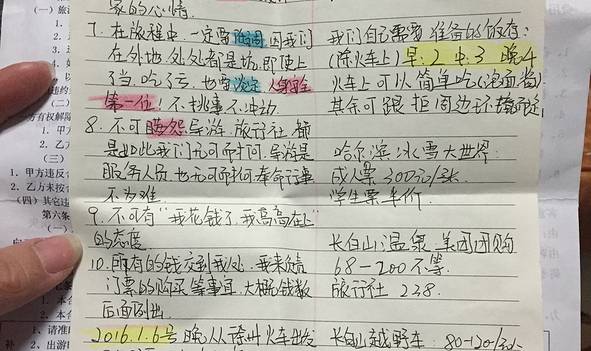 家的心情.
7. 在旅程中,一定要防骗,因我们
在外地,处处都是坑,即使上
了当吃了亏,也要淡定,人身安全
第一位!不挑事不冲动.
8. 不可埋怨导游.旅行社 都
是如此我们无可奈何.导游是
服务人员,也无可奈何奉命行事
不为难.
9. 不可有"我花钱了.我高高在上"
的态度
10. 所有的钱交到我处.我来负责
门票的购买等事宜.大概钱数
后面列出
2016.1.6号 晚从徐州火车出发
我们自己需要准备的饭有:
(除火车上) 早:2 中:3 晚4
火车上可以简单吃(泡面类)
其余可跟据周边环境而定
哈尔滨冰雪大世界:
成人票 300元/张
学生票半价.
长白山温泉.美团团购
68-200不等.
旅行社 238.
长白山越野车: 80-120/人
(一)旅
(二)
(三)
甲方违反
2. 乙方未按
(四) 其它违
第六条